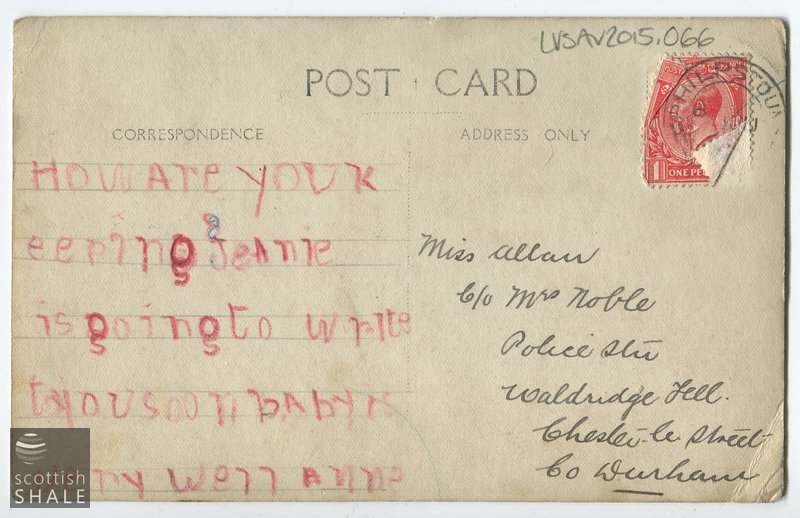 LVSAV2015.066
POST CARD
CORRESPONDENCE
ADDRESS ONLY
PHILPSTOUN
1 ONE PEN
HOW ARE YOU K
eeping Jeanie
is going to write
to you soon baby is
very well Anne
Miss Allan
C/o Mrs Noble
Police Stn
Waldridge Fell.
Chester-le Street
Co Durham
scottish
SHALE